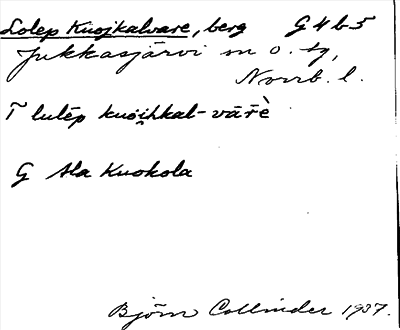 Lolep Kuojkalvare, berg G4b5
Jukkasjärvi sn o. tg,
Norrb. l.
T lulēp kuoi̯hkal-vārè
G Ala Kuokola
Björn Collinder 1937.